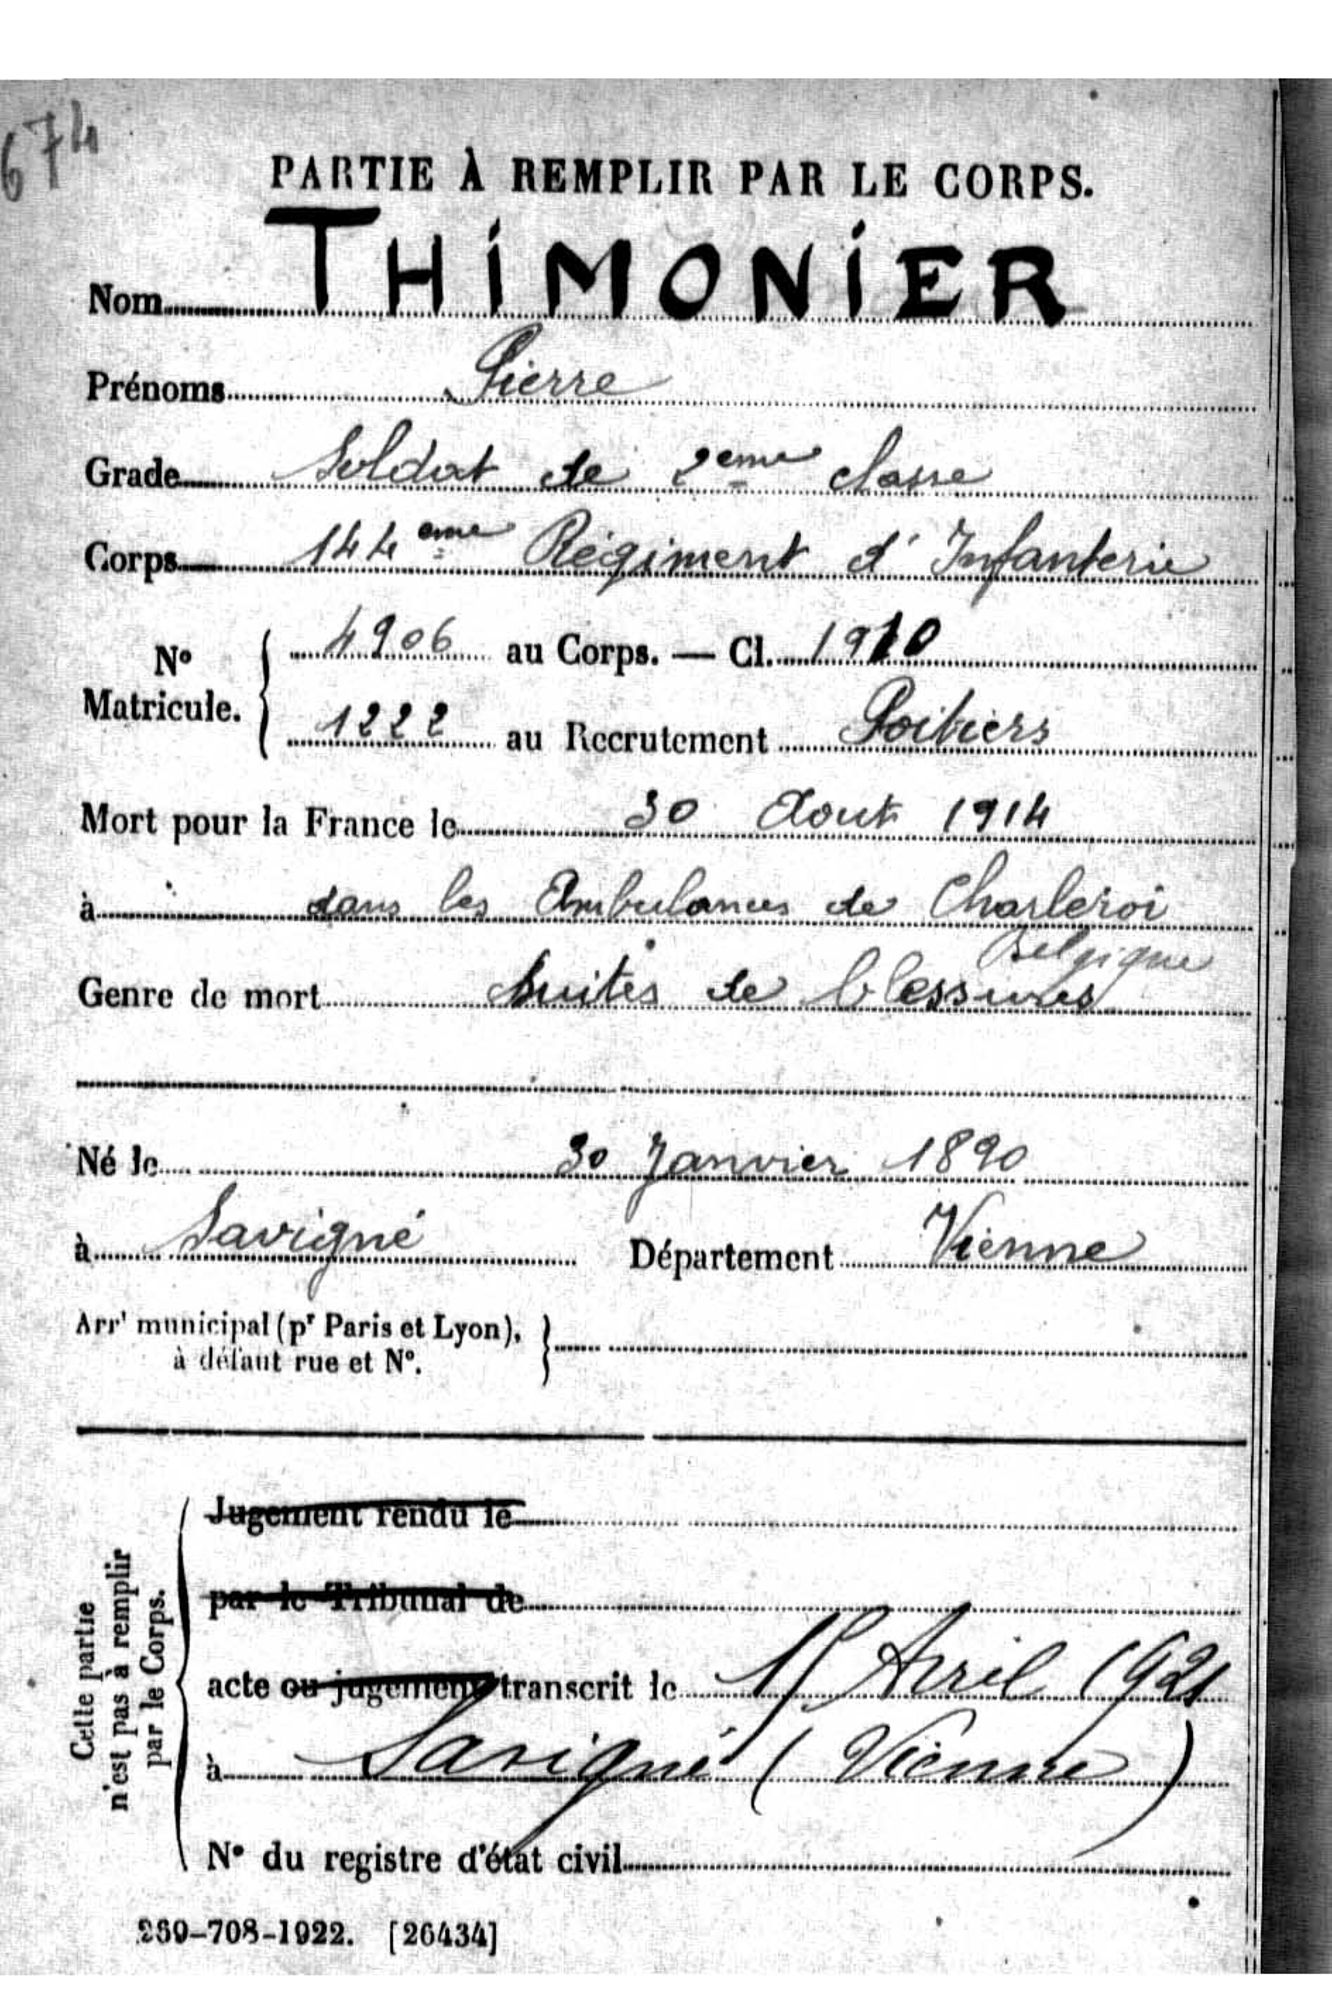 674
PARTIE À REMPLIR PAR LE CORPS.
Nom THIMONIER
Prénoms Pierre
Grade Soldat de 2eme classe
Corps 144eme Régiment d'Infanterie
No Matricule. { 4906 au Corps. — Cl. 1910
1222 au Recrutement Poitiers
Mort pour la France le 30 Aout 1914
à dans les Ambulances de Charleroi
Belgique
Genre de mort Suites de blessures
Né le 30 Janvier 1890
à Savigné Département Vienne
Arrt municipal (pr Paris et Lyon),
à défaut rue et No.
Cette partie
n'est pas à remplir
par le Corps.
Jugement rendu le
par le Tribunal de
acte ou jugement transcrit le Avril 1921
à Savigné (Vienne)
No du registre d'état civil
269-708-1922. [26434]